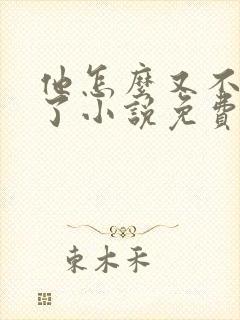 他怎麼又不
了小說免費
東木禾